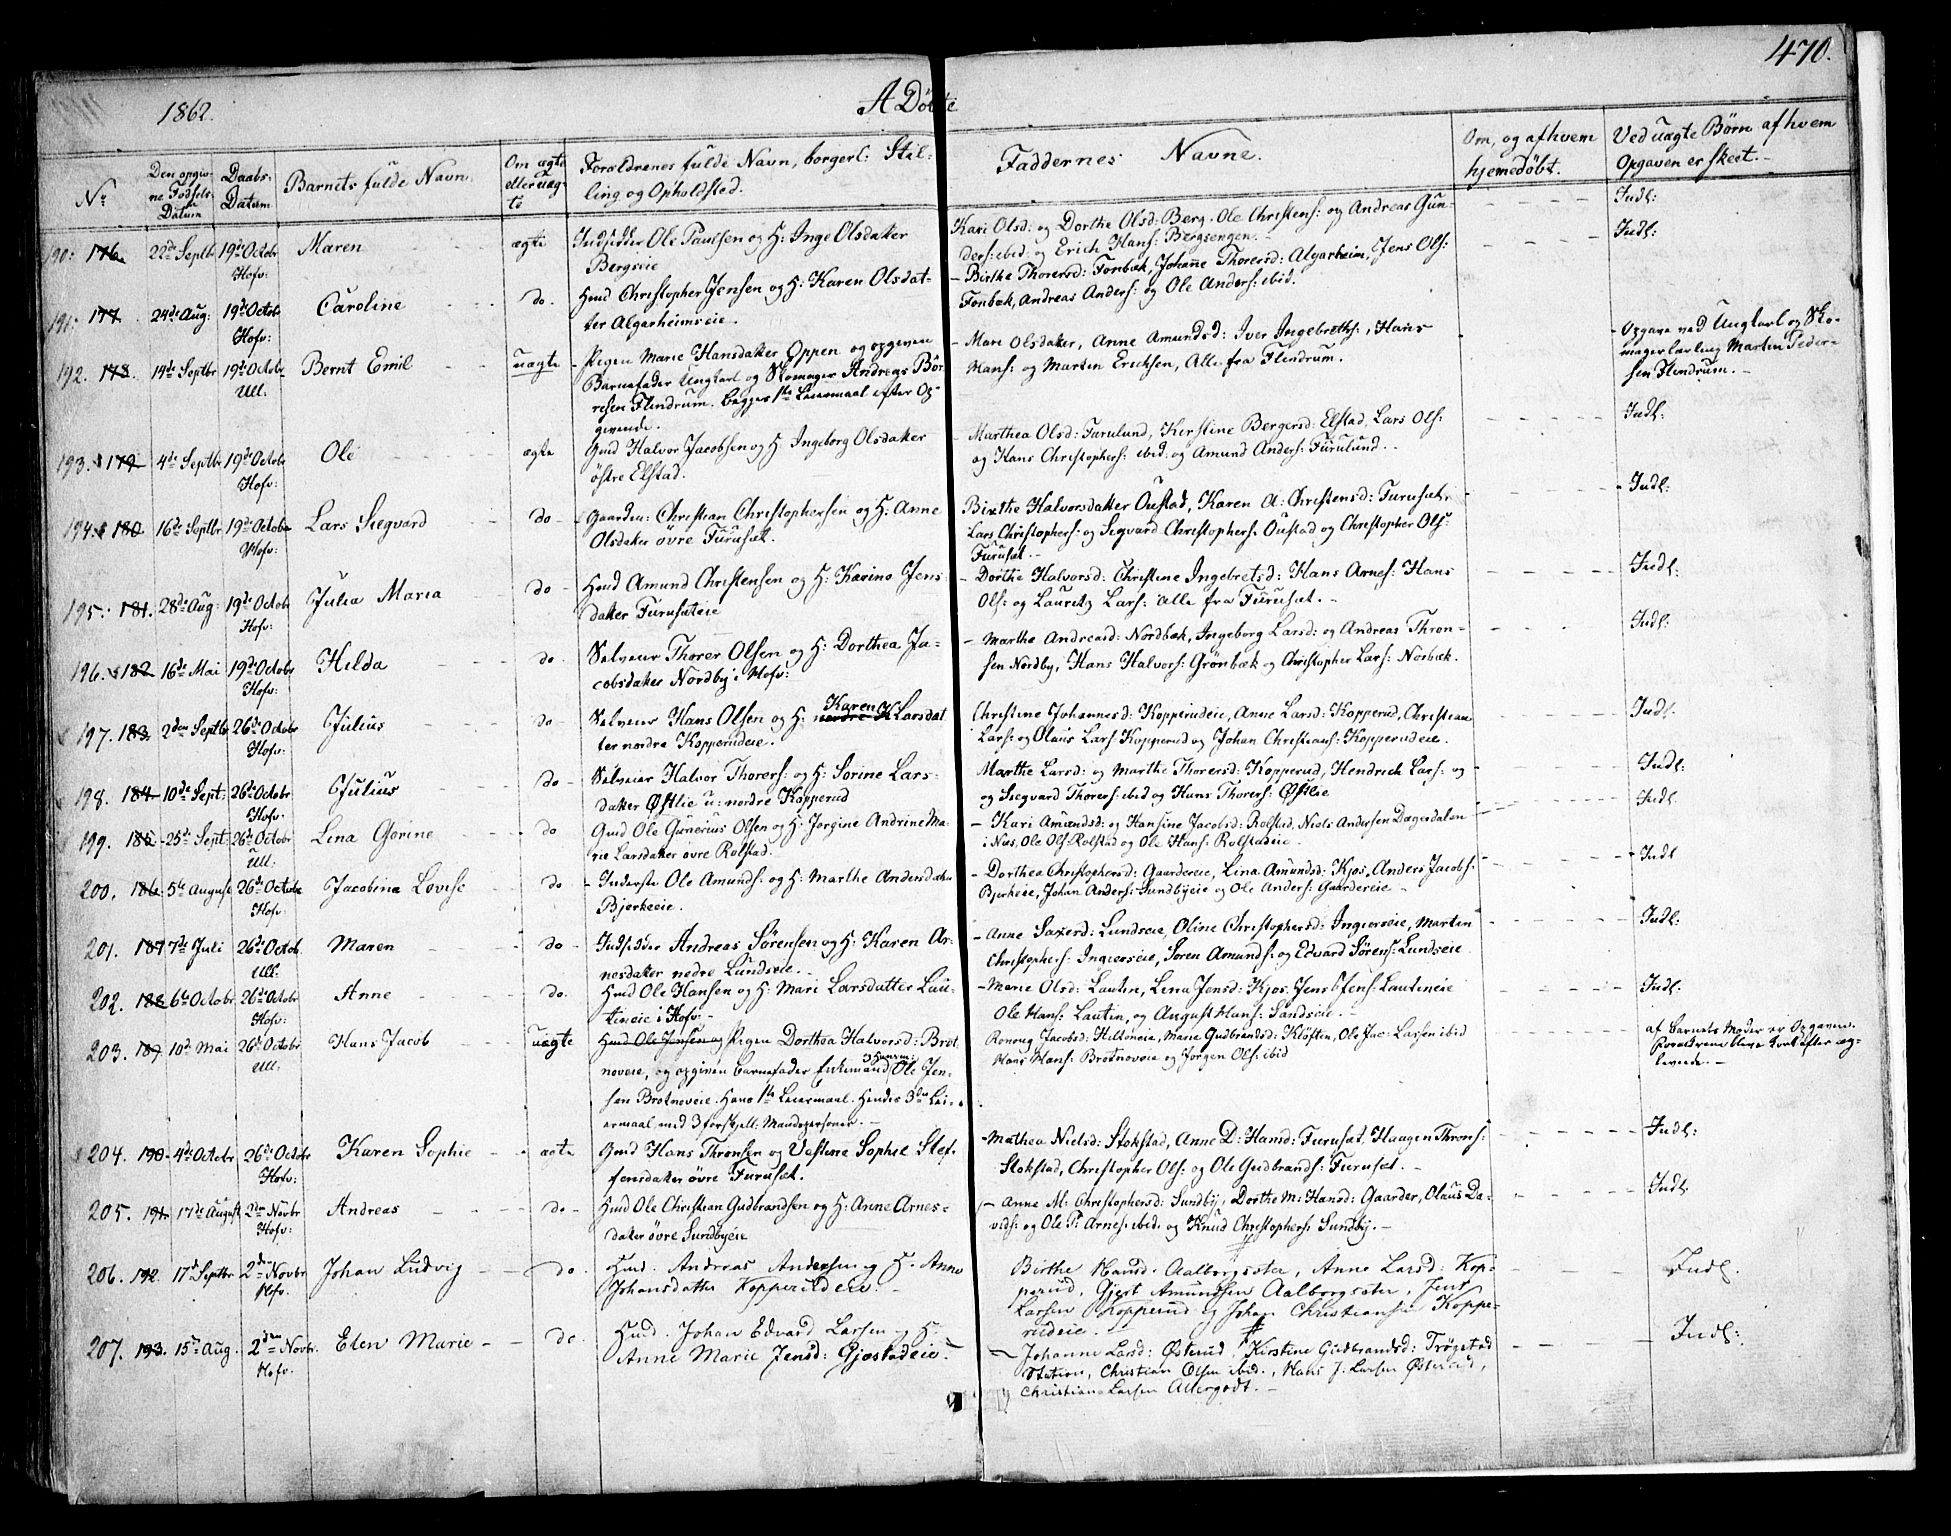 470.
1862.
A Döbte
No
Den opgivne Födsels Datum
Daabs-Datum
Barnets fulde Navn.
Om ægte eller uægte
Forældrenes fulde Navn, borgerl: Stilling og Opholdsted.
Faddernes Navne.
Om, og af hvem hjemedöbt.
Ved uægte Börn af hvem Opgaven er skeet.
190: 176. 22de Septbr 19de Octobr Hofv: Maren ægte Indsidder Ole Paulsen og H: Inge Olsdatter Bergseie
Kari Olsd: og Dorthe Olsd: Berg. Ole Christens: og Andreas Gunders: ibid: og Erich Hans: Bergsengen. Indl:
191. 177. 24de Aug: 19de Octobr Hofv: Caroline do. Huusmd Christopher Jensen og H: Karen Olsdatter Algarheimseie.
Birthe Thorersd: Fonbæk, Johanne Thorersd: Algarheim, Jens Ols: Fonbæk, Andreas Anders: og Ole Anders: ibid. Indl:
192. 178. 14de Septbr 19de Octobr Ull: Bernt Emil uægte Pigen Marie Hansdatter Oppen og opgiven Barnefader Ungkarl og Skomager Andreas Börresen Flendrum. begges 1ste Leiermaal efter Opgivende.
Mari Olsdatter, Anne Amundsd: Iver Ingebreths:, Hans Hans: og Martin Ericksen, Alle fra Flendrum. Opgave ved Ungkarl og Skomagerlærling Martin Pedersen Flendrum.
193. 179. 4de Septbr 19de Octobr Hofv: Ole ægte Gmd Halvor Jacobsen og H. Ingeborg Olsdatter östre Elstad.
Marthea Olsd: Furulund, Kirstine Bergersd: Elstad, Lars Ols: og Hans Christophers: ibid: og Amund Anders: Furulund. Indl:
194. 180. 16de Septbr 19de Octobr Hofv: Lars Siegvard do Gaardm: Christian Christophersen og H: Anne Olsdatter övre Furuset.
Birthe Halvorsdatter Oustad, Karen A: Christensd: Furuset. Lars Christophers: og Segvard Christophers: Oustad og Christopher Ols: Furuset. Indl:
195. 181. 28de Aug: 19de Octobr Hofv: Julia Maria do Hmd Amund Christensen og H: Karine Jensdatter Furuseteie
Dorthe Halvorsd: Christine Ingebretsd: Hans Arnes: Hans Ols: og Lauritz Lars: alle fra Furuset. Indl:
196. 182. 16de Mai 19de Octobr Hofv: Hilda do. Selveier Thorer Olsen og H: Dorthea Jacobsdatter Nordby i Hofv:
Marthe Andreasd: Nordbæk, Ingeborg Larsd: og Andreas Thronsen Nordby, Hans Halvors: Grönbæk og Christopher Lars: Norbæk. Indl:
197. 183. 2den Septbr 26de Octobr Hofv: Julius do Selveier Hans Olsen og H: Karen Larsdatter nordre Kopperudeie.
Christine Johannesd: Kopperudeie, Anne Larsd: Kopperud, Christian Lars: og Olaus Lars: Kopperud og Johan Christians: Kopperudeie. Indl.
198. 184. 10de Sept: 26de Octobr Hofv: Julius do Selveier Halvor Thorers: og H: Sorine Larsdatter Östlie u: nordre Kopperud
Marthe Larsd: og Marthe Thorersd: Kopperud, Hendrich Lars: og og Siegvard Thorers: ibid og Hans Thorers: Östlie Indl:
199. 185. 25de Sept: 26de Octobr Ull: Lina Gorine do Gmd Ole Gunerius Olsen og H: Jorgine Andrine Marie Larsdatter övre Rolstad.
Kari Amundsd: og Hansine Jacobsd: Rolstad, Niels Andersen Dægesdalen i Næs, Ole Ols: Rolstad og Ole Hans: Rolstadeie. Indl:
200. 186. 5te August 26de Octobr Hofv: Jacobina Lovise do Inderste Ole Amunds: og H: Marthe Andersdatter Bjerkeeie.
Dorthea Christophersd: Gaardereie, Lina Amundsd: Kjos, Anders Jacobs: Bjerkeie, Johan Anders: Sundbyeie og Ole Anders: Gaardereie Indl
201. 187 7de Juli 26de Octob Ull. Maren do Indsidder Andreas Sörensen og H: Karen Arnesdatter nedre Lundseie.
Anne Saxersd: Lundseie, Oline Christophersd: Ingierseie, Martin Christophers: Ingierseie, Sören Amunds: og Edvard Sörens: Lundseie Indl:
202. 188 6te Octobr 26de Octobr Hofv: Anne do. Hmd Ole Hansen og H: Mari Larsdatter Lautineie i Hofv:
Marie Olsd: Lautin, Lina Jensd: Kjos, Jens Jens: Lautineie Ole Hans: Lautin, og August Hans: Sandseie. Indl:
203. 189 10de Mai 26de Octobr Ull: Hans Jacob uægte Hmd Ole Jensen og Pigen Dorthea Halvorsd: Brotnoveie, og opgiven Barnefader Enkemand, Huusm: Ole Jensen Brotnoveie. Hans 1ste Leiermaal. Hendes 3die Leiermaal med 3 forskjell: Mandspersoner.
Ronoug Jacobsd: Hiltoneie, Marie Gudbrandsd: Klöften, Ole Jac: Larsen ibid Hans Hans: Brotnoveie og Jörgen Ols: ibid
af Barnets Moder er Opgaven. Forældrene bleve
204. 190. 4de Octobr 26de Octobr Hofv: Karen Sophie ægte Gmd Hans Thronsen og Vestine Sophie Steffensdatter övre Furuset.
Mathea Nielsd: Stokstad, Anne D: Hansd: Furuset, Haagen Throns: Stokstad, Christopher Ols: og Ole Gudbrands: Furuset. Indl:
205. 191. 17de August 2den Novbr Hofv: Andreas do Hmd Ole Christian Gudbrandsen og H: Anne Arnesdatter övre Sundbyeie
Anne M: Christophersd: Sundby, Dorthe M: Hansd: Gaarder, Olaus Davids: og Ole P: Arnes: ibid: og Knud Christophers: Sundby. Indl
206. 192. 17de Septbr 2den Novbr Hofv. Johan Ludvig do. Hmd. Andreas Andersen og H. Anne Johansdatter Kopperudeie.
Birthe Hansd. Aalborgsæter, Anne Larsd: Kopperud, Gjert Amundsen Aalborgsæter, Jens Larsen Kopperud og Johan Christiansen Kopperudeie. Indl.
207. 193. 15de Aug. 2den Novbr. Hofv. Elen Marie do Hmd. Johan Edvard Larsen og H. Anne Marie Jensd: Gjestadeie.
Johanne Larsd: Österud, Kirstine Gudbrandsd: Trögstad Station, Christian Olsen ibid., Hans J: Larsen Österud, Christian Larsen Allergodt. Indl: